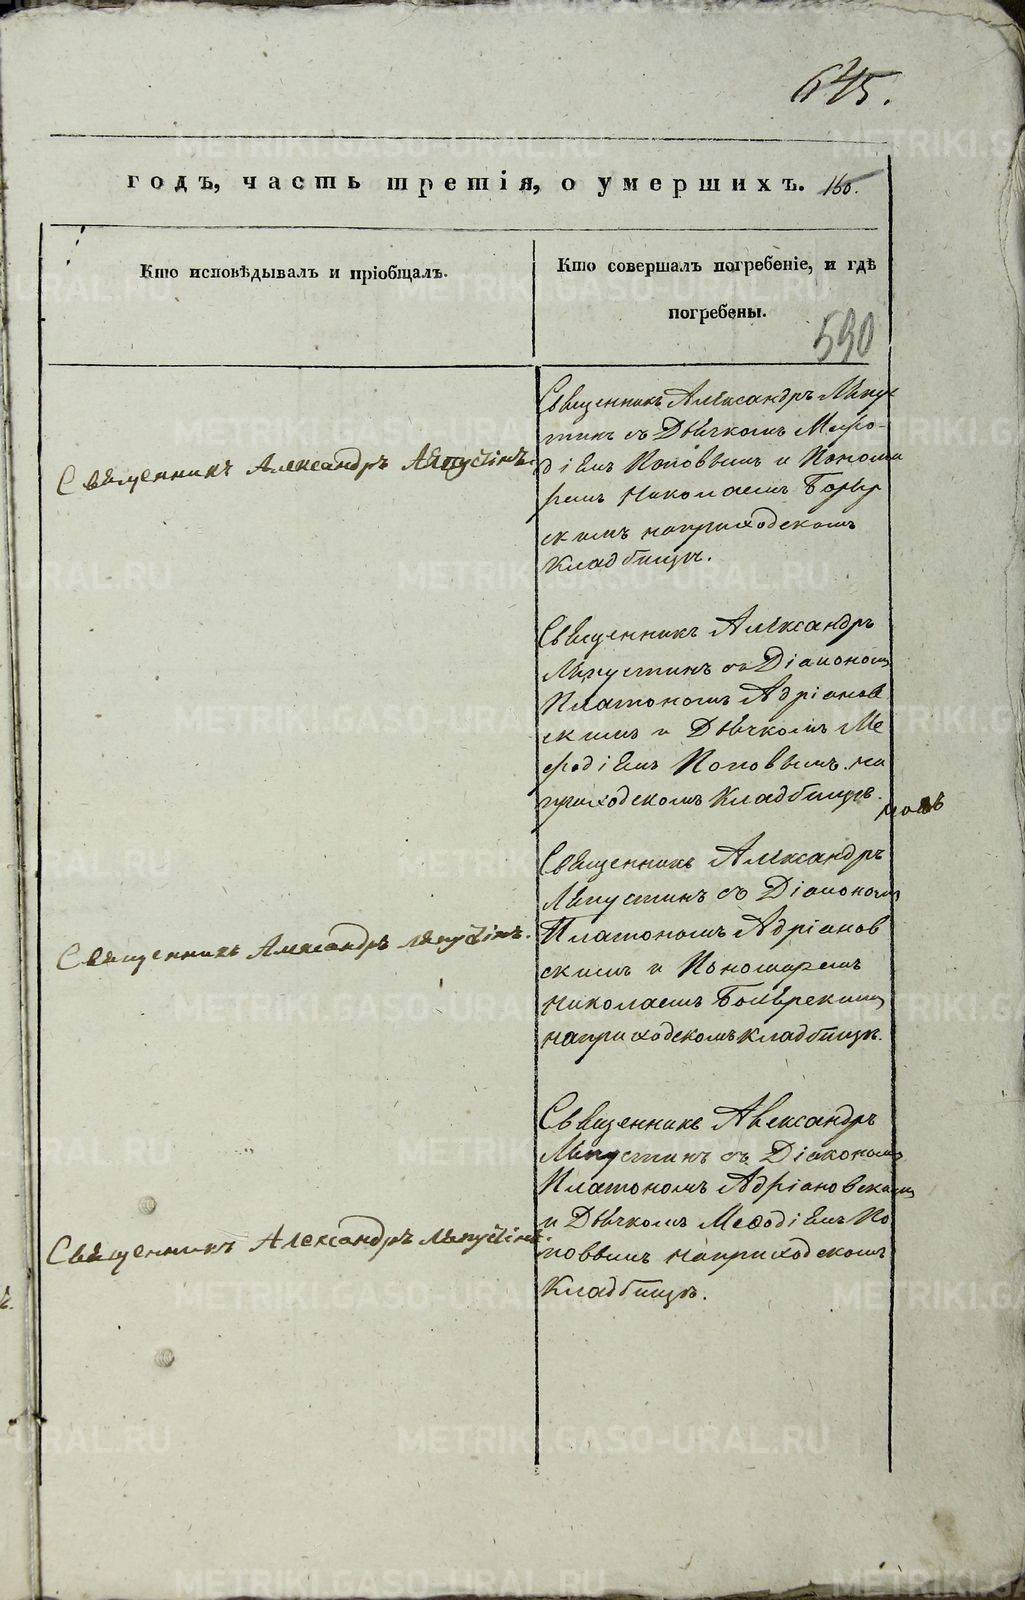 645.
годъ, часть третія, о умершихъ. 160.
Кто исповѣдывалъ и пріобщалъ.
Кто совершалъ погребеніе, и гдѣ
погребены.
590
Священникъ Александръ Ляпустинъ.
Священникъ Александръ Ляпу
стинъ съ Дьячкомъ Мефо-
діемъ Поповымъ и Понома
ремъ Николаемъ
скимъ на приходскомъ
Кладбищѣ.
Священникъ Александръ
Ляпустинъ съ Діакономъ
Платономъ Адріанов
скимъ и Дьячкомъ Ме
фодіемъ Поповымъ на
приходскомъ Кладбищѣ.
Священникъ Александръ Ляпустинъ.
Священникъ Александръ
Ляпустинъ съ Діакономъ
Платономъ Адріанов
скимъ и Пономаремъ
Николаемъ
на приходскомъ кладбищѣ.
Священникъ Александръ Ляпустинъ.
Священникъ Александръ
Ляпустинъ съ Діакономъ
Платономъ Адріановскимъ
и Дьячкомъ Меѳодіемъ По
повымъ на приходскомъ
Кладбищѣ.
METRIKI.GASO-URAL.RU